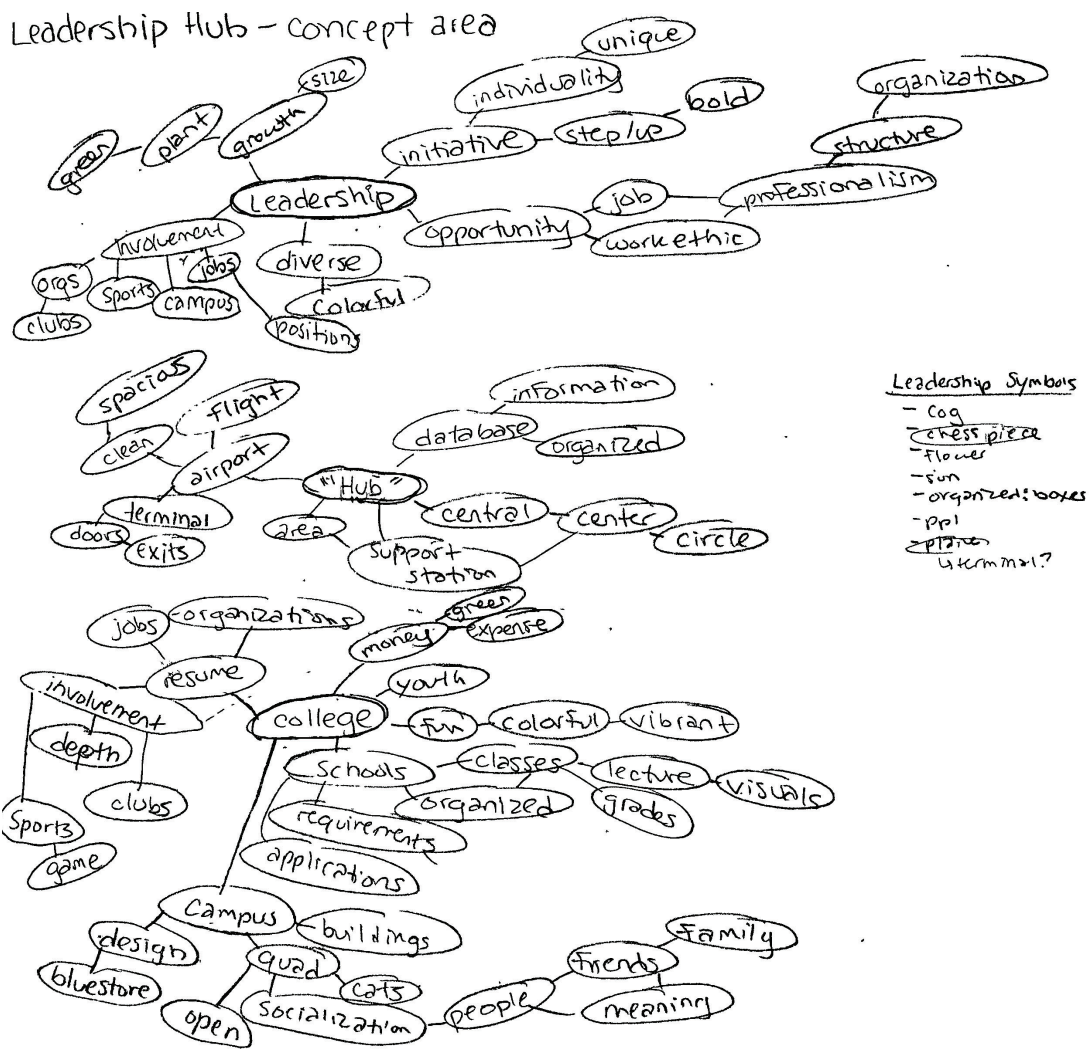 Leadership Hub - concept area
unique
size
individuality
organization
bold
growth
plant
green
initiative
step/up
structure
Leadership
professionalism
job
opportunity
work ethic
involvement
diverse
jobs
orgs
sports
campus
colorful
clubs
positions
spacious
flight
information
clean
database
organized
airport
"Hub"
terminal
central
center
doors
exits
area
circle
support
station
Leadership Symbols
- cog
- chess piece
- flower
- sun
- organized: boxes
- ppl
- plane
terminal?
jobs
organizations
green
money
expense
resume
youth
involvement
college
fun
colorful
vibrant
depth
schools
classes
lecture
visuals
clubs
organized
grades
requirements
sports
applications
game
campus
buildings
design
family
quad
friends
bluestore
cats
open
socialization
people
meaning